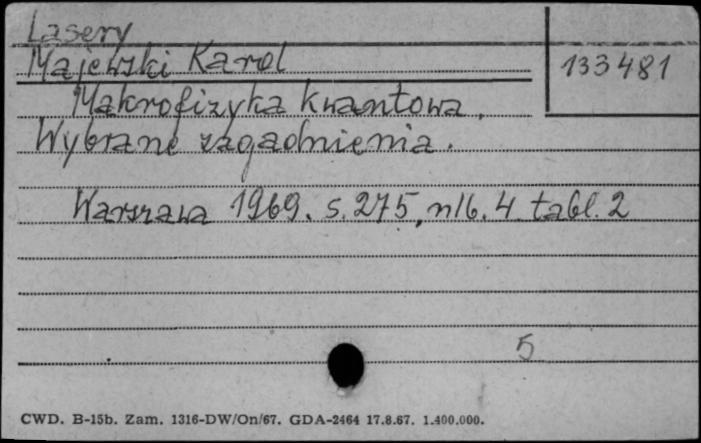 Lasery
Majewski Karol
133481
Makrofizyka kwantowa.
Wybrane zagadnienia.
Warszawa 1969. s. 275, nlb. 4 tabl. 2
5
CWD. B-15b. Zam. 1316-DW/On/67. GDA-2464 17.8.67. 1.400.000.